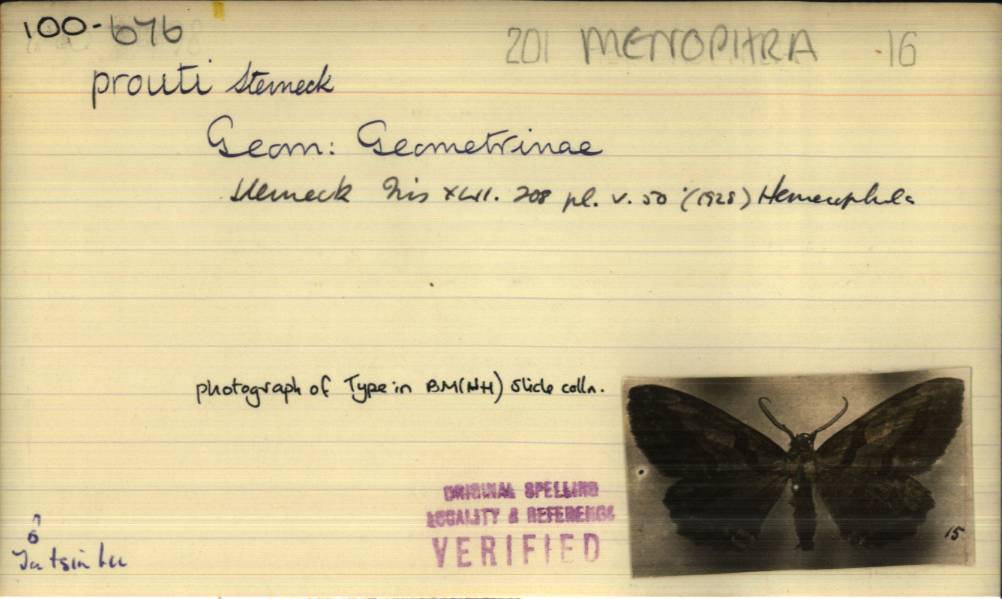 100-676
201 MENOPHRA 16
prouti Sterneck
Geom: Geometrinae
Sterneck Iris XLII. 208 pl. v. 50 (1928) Hemerophila
photograph of Type in BM(NH) slide colln.
ORIGINAL SPELLING
LOCALITY & REFERENCE
VERIFIED
15
♂
Ta tsin lu